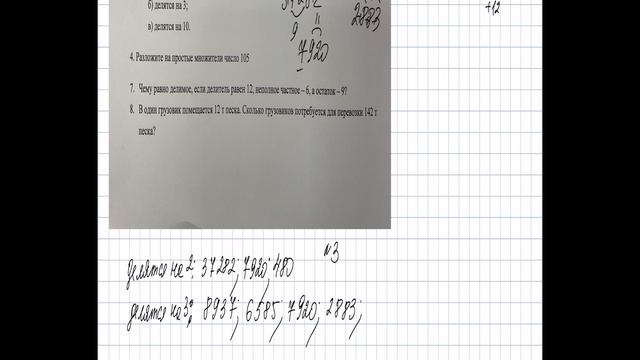 б) делятся на 3;
2883
+12
9
в) делятся на 10.
7920
4. Разложите на простые множители число 105
7. Чему равно делимое, если делитель равен 12, неполное частное – 6, а остаток – 9?
8. В один грузовик помещается 12 т песка. Сколько грузовиков потребуется для перевозки 142 т
песка?
№3
делятся на 2: 37282; 7920; 480
делятся на 3: 8937; 6585; 7920; 2883;